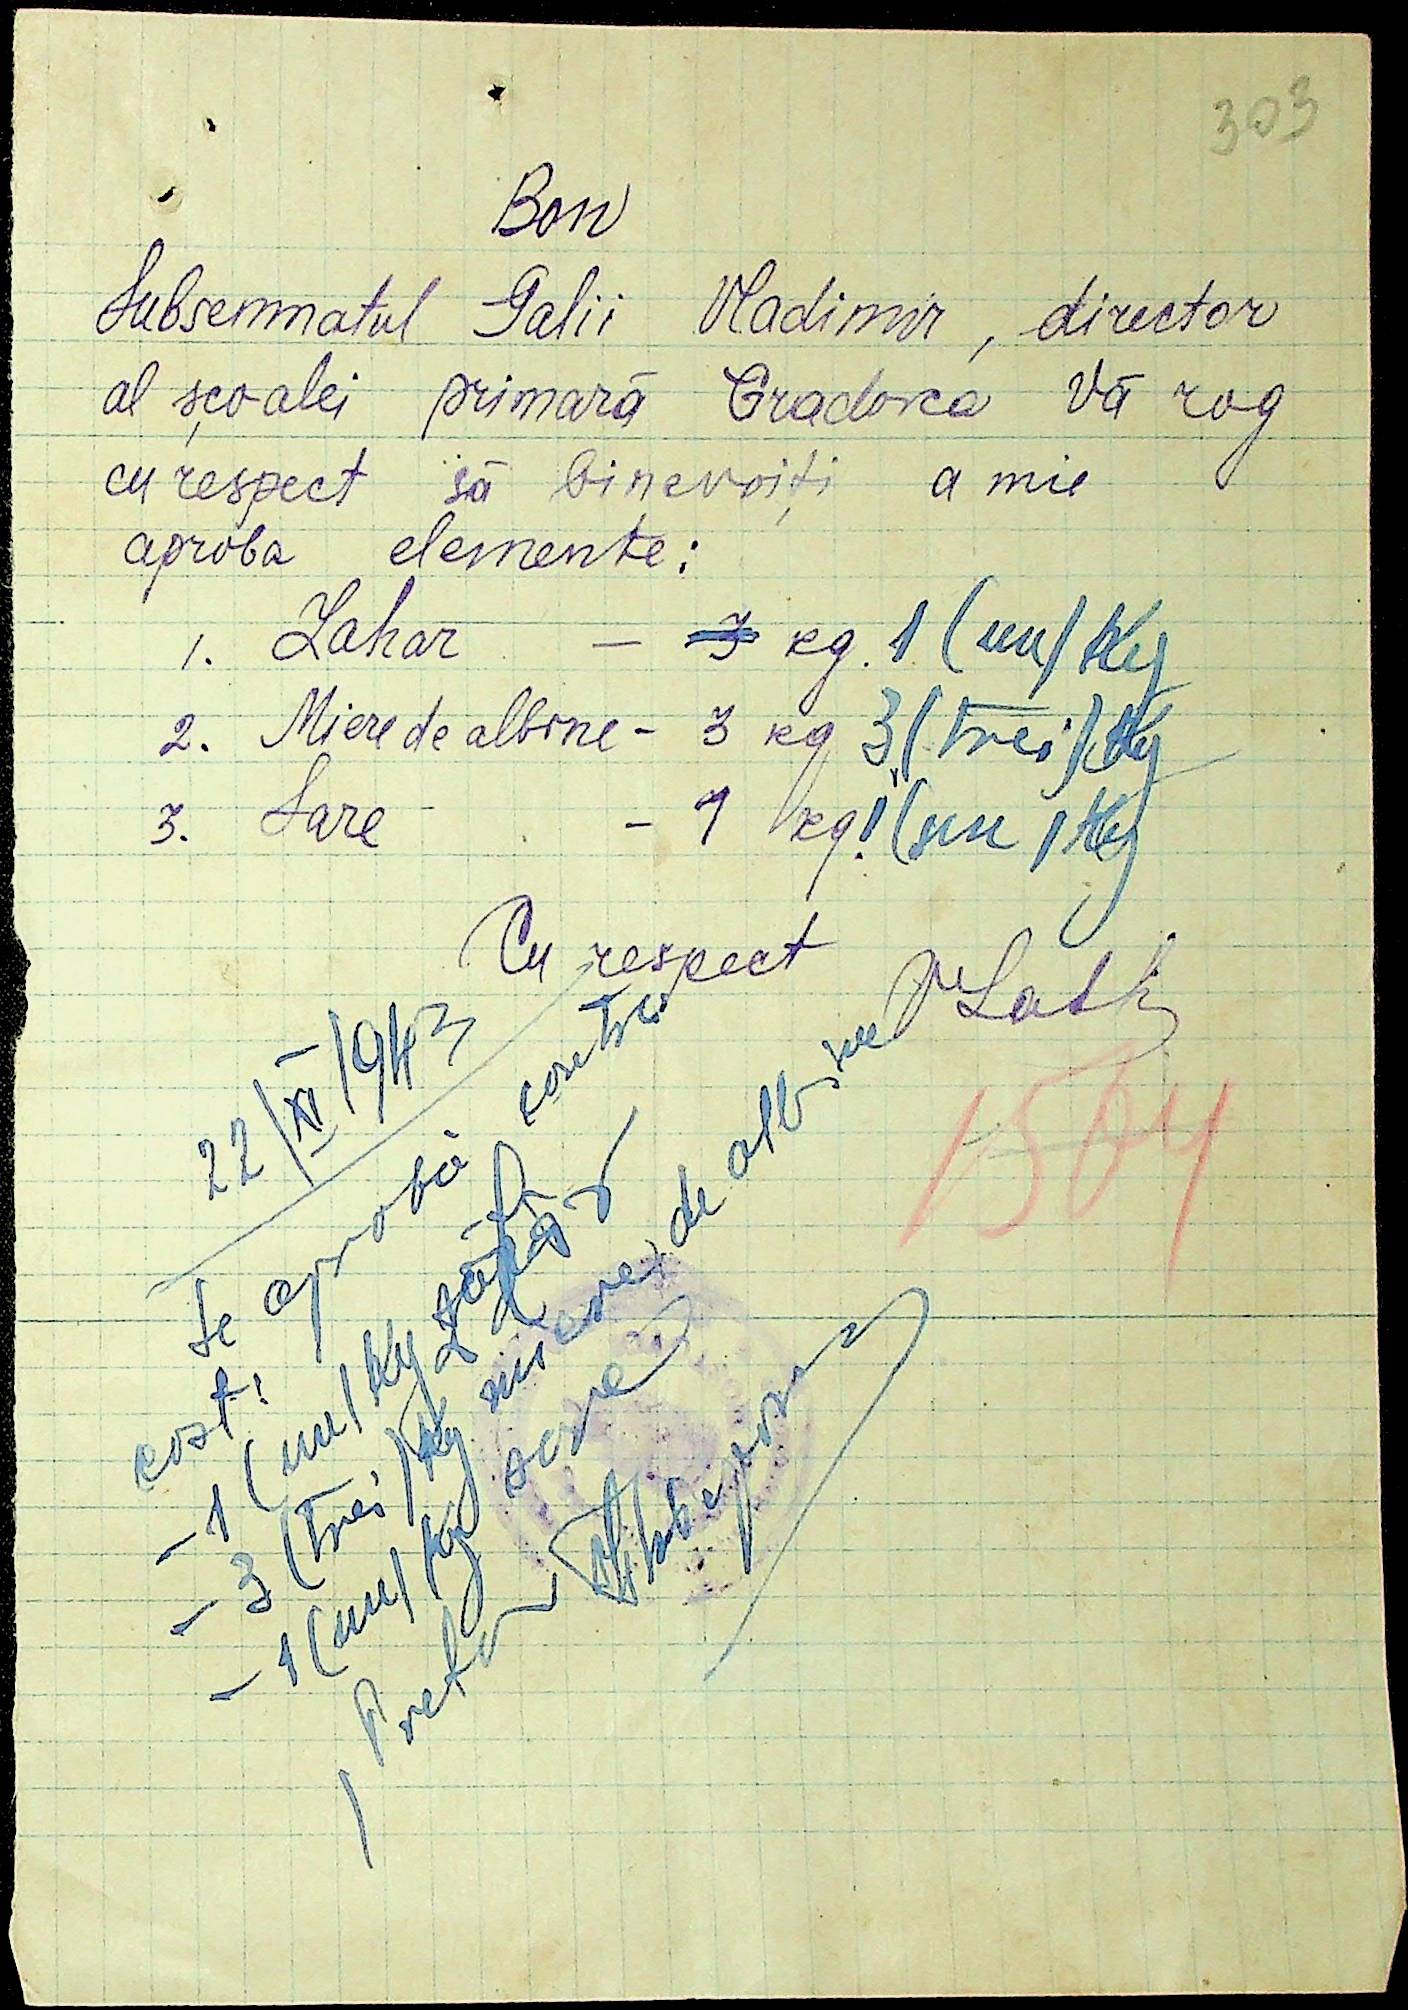 303
Bon
Subsemnatul Galii Vladimir, director
al școalei primară Gradovca Vă rog
cu respect să binevoiți a mie
aproba elemente:
1. Zahar — 3 kg. 1 (un) Kg
2. Miere de albine - 3 kg 3 (trei) Kg
3. Sare - 1 kg 1 (un) Kg
Cu respect
22/XI/1943
1504
Se aprobă contra
cost:
- 1 (un) Kg zahăr
- 3 (trei) Kg miere de albine
- 1 (un) Kg sare
Pretor